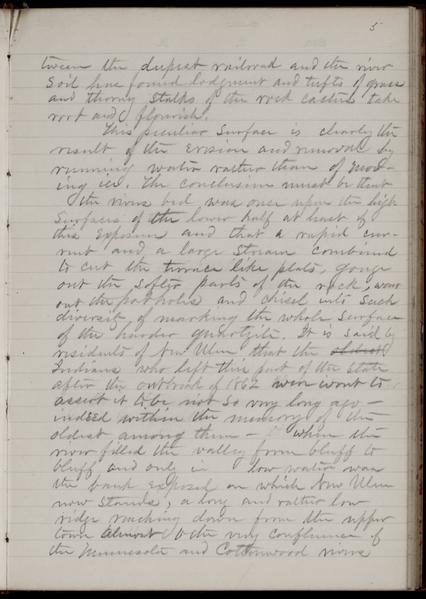 5
tween the deepest railroad and the river
soil has found lodgment and tufts of grass
and thorny stalks of the rock cactus take
root and flourish.
This peculiar surface is clearly the
result of the erosion and removal by
running water rather than of mov-
ing ice. The conclusion must be that
the rivers bed was once upon the high
surfaces of the lower half at least of
this exposure and that a rapid cur-
rent and a large stream combined
to cut the terrace like plats, gouge
out the softer parts of the rock wear
out the potholes and chisel into such
diversity of marking the whole surface
of the harder quartzite. It is said by
residents of New Ulm that the oldest
Indians who left this part of the state
after the outbreak of 1862 were wont to
assert it to be not so very long ago —
indeed within the memory of the
oldest among them — when the
river filled the valley from bluff to
bluff and only in low water was
the bank exposed on which New Ulm
now stands, a long and rather low
ridge reaching down from the upper
town almost to the very confluence of
the Minnesota and Cottonwood rivers